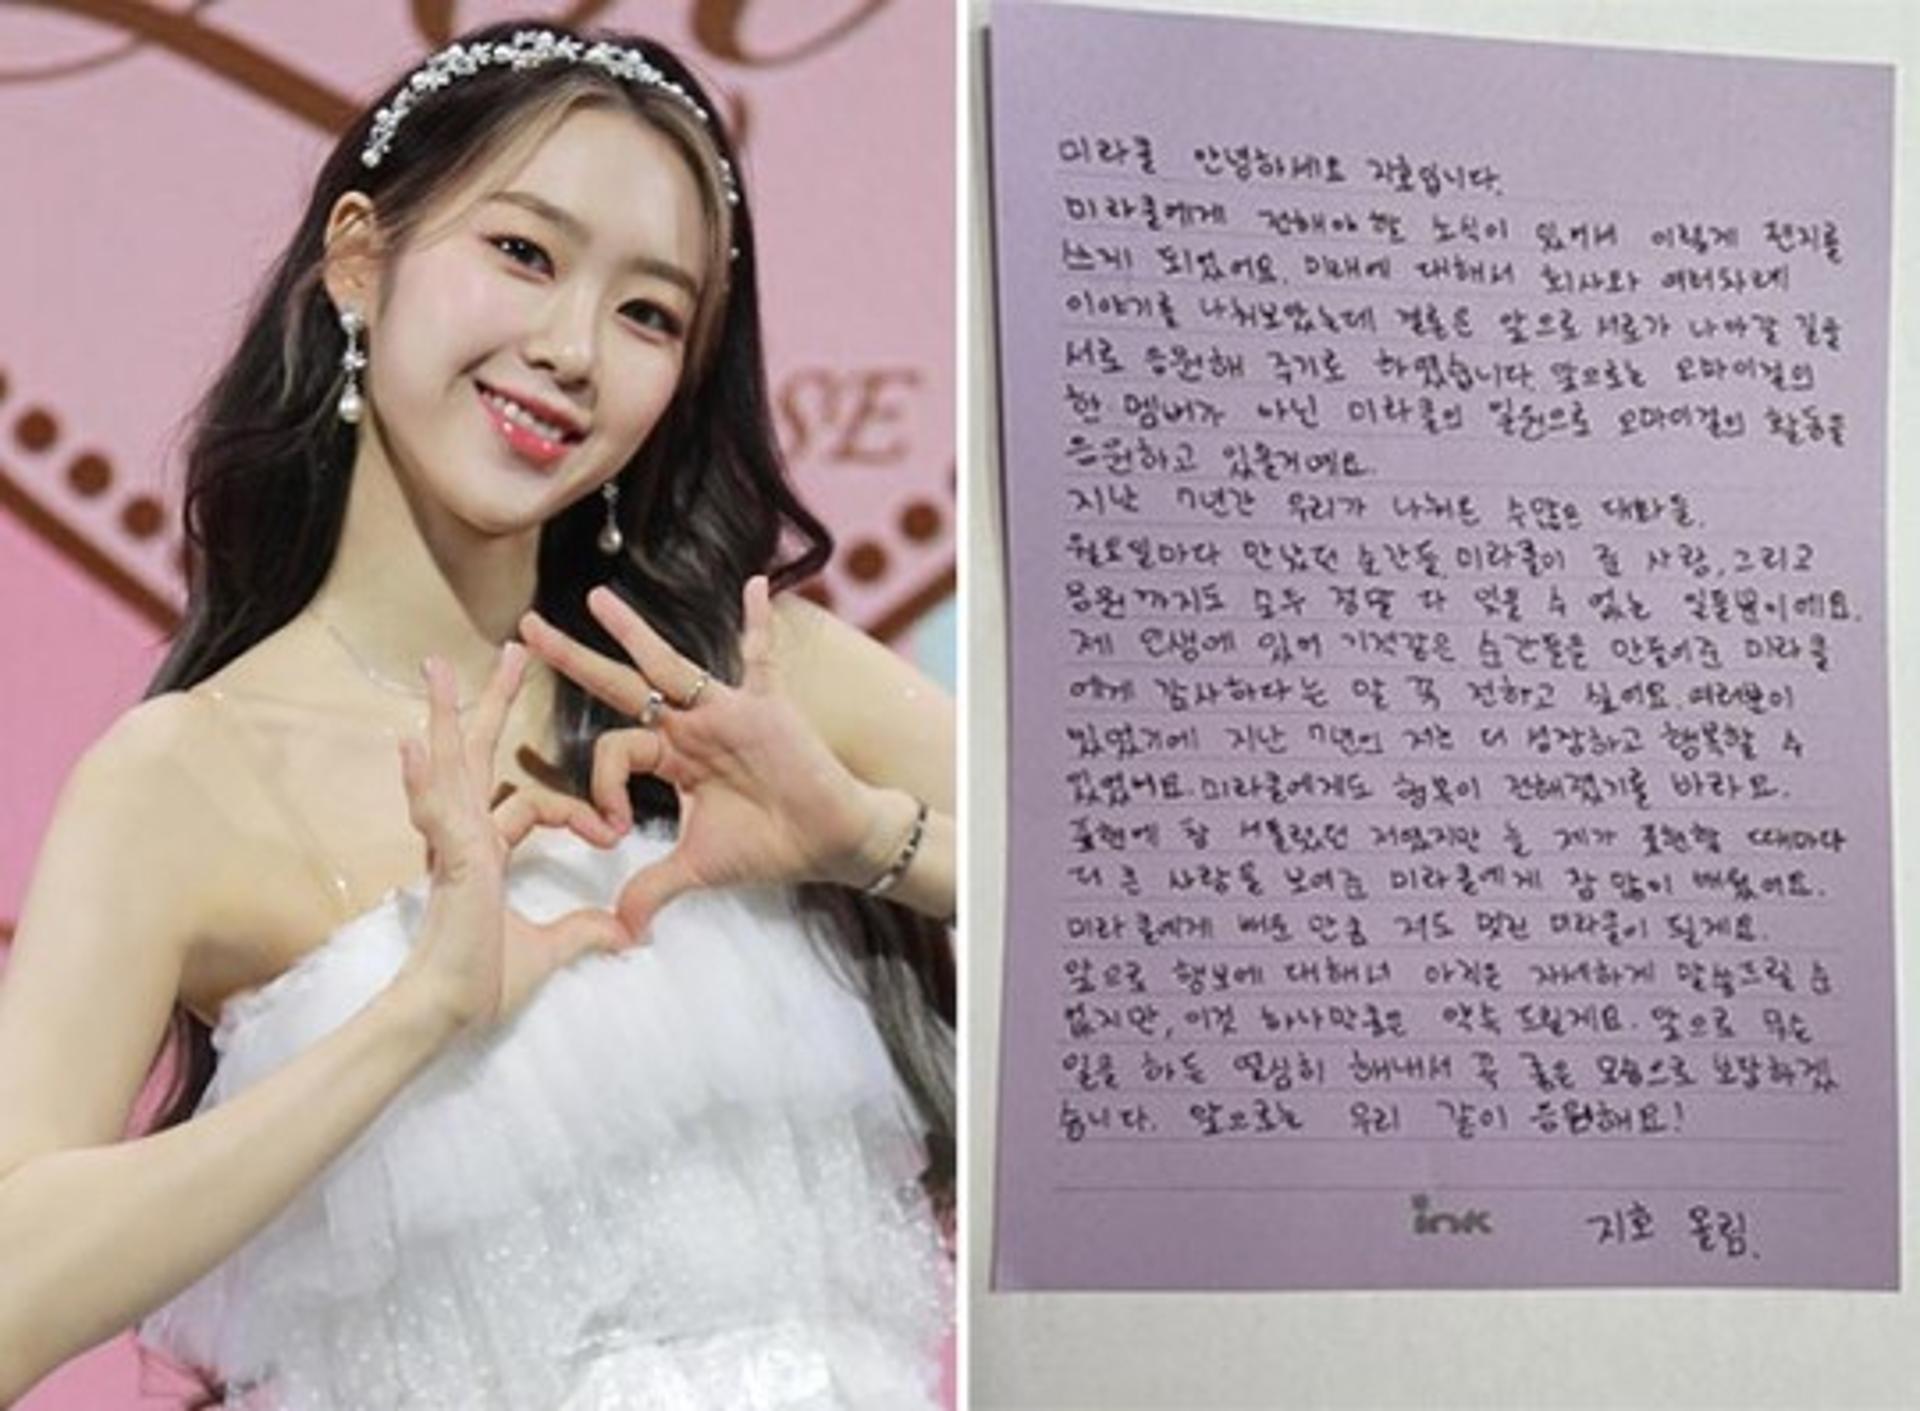 SE
미라클 안녕하세요 지호입니다.
미라클에게 전해야 할 소식이 있어서 이렇게 편지를
쓰게 되었어요. 미래에 대해서 회사와 여러차례
이야기를 나눠보았는데 결론은 앞으로 서로가 나아갈 길을
서로 응원해 주기로 하였습니다. 앞으로는 오마이걸의
한 멤버가 아닌 미라클의 일원으로 오마이걸의 활동을
응원하고 있을거예요.
지난 7년간 우리가 나눠온 수많은 대화들.
월요일마다 만났던 순간들, 미라클이 준 사랑, 그리고
응원까지도 모두 정말 다 잊을 수 없는 일들뿐이에요.
제 인생에 있어 기적같은 순간들을 만들어준 미라클
에게 감사하다는 말 꼭 전하고 싶어요. 여러분이
있었기에 지난 7년의 저는 더 성장하고 행복할 수
있었어요. 미라클에게도 행복이 전해졌기를 바라요.
표현에 참 서툴렀던 저였지만 늘 제가 표현할 때마다
더 큰 사랑을 보여준 미라클에게 참 많이 배웠어요.
미라클에게 배운 만큼 저도 멋진 미라클이 될게요.
앞으로 행보에 대해서 아직은 자세하게 말씀드릴 순
없지만, 이것 하나만큼은 약속 드릴게요. 앞으로 무슨
일을 하든 열심히 해내서 꼭 좋은 모습으로 보답하겠
습니다. 앞으로는 우리 같이 응원해요!
ink
지호 올림.